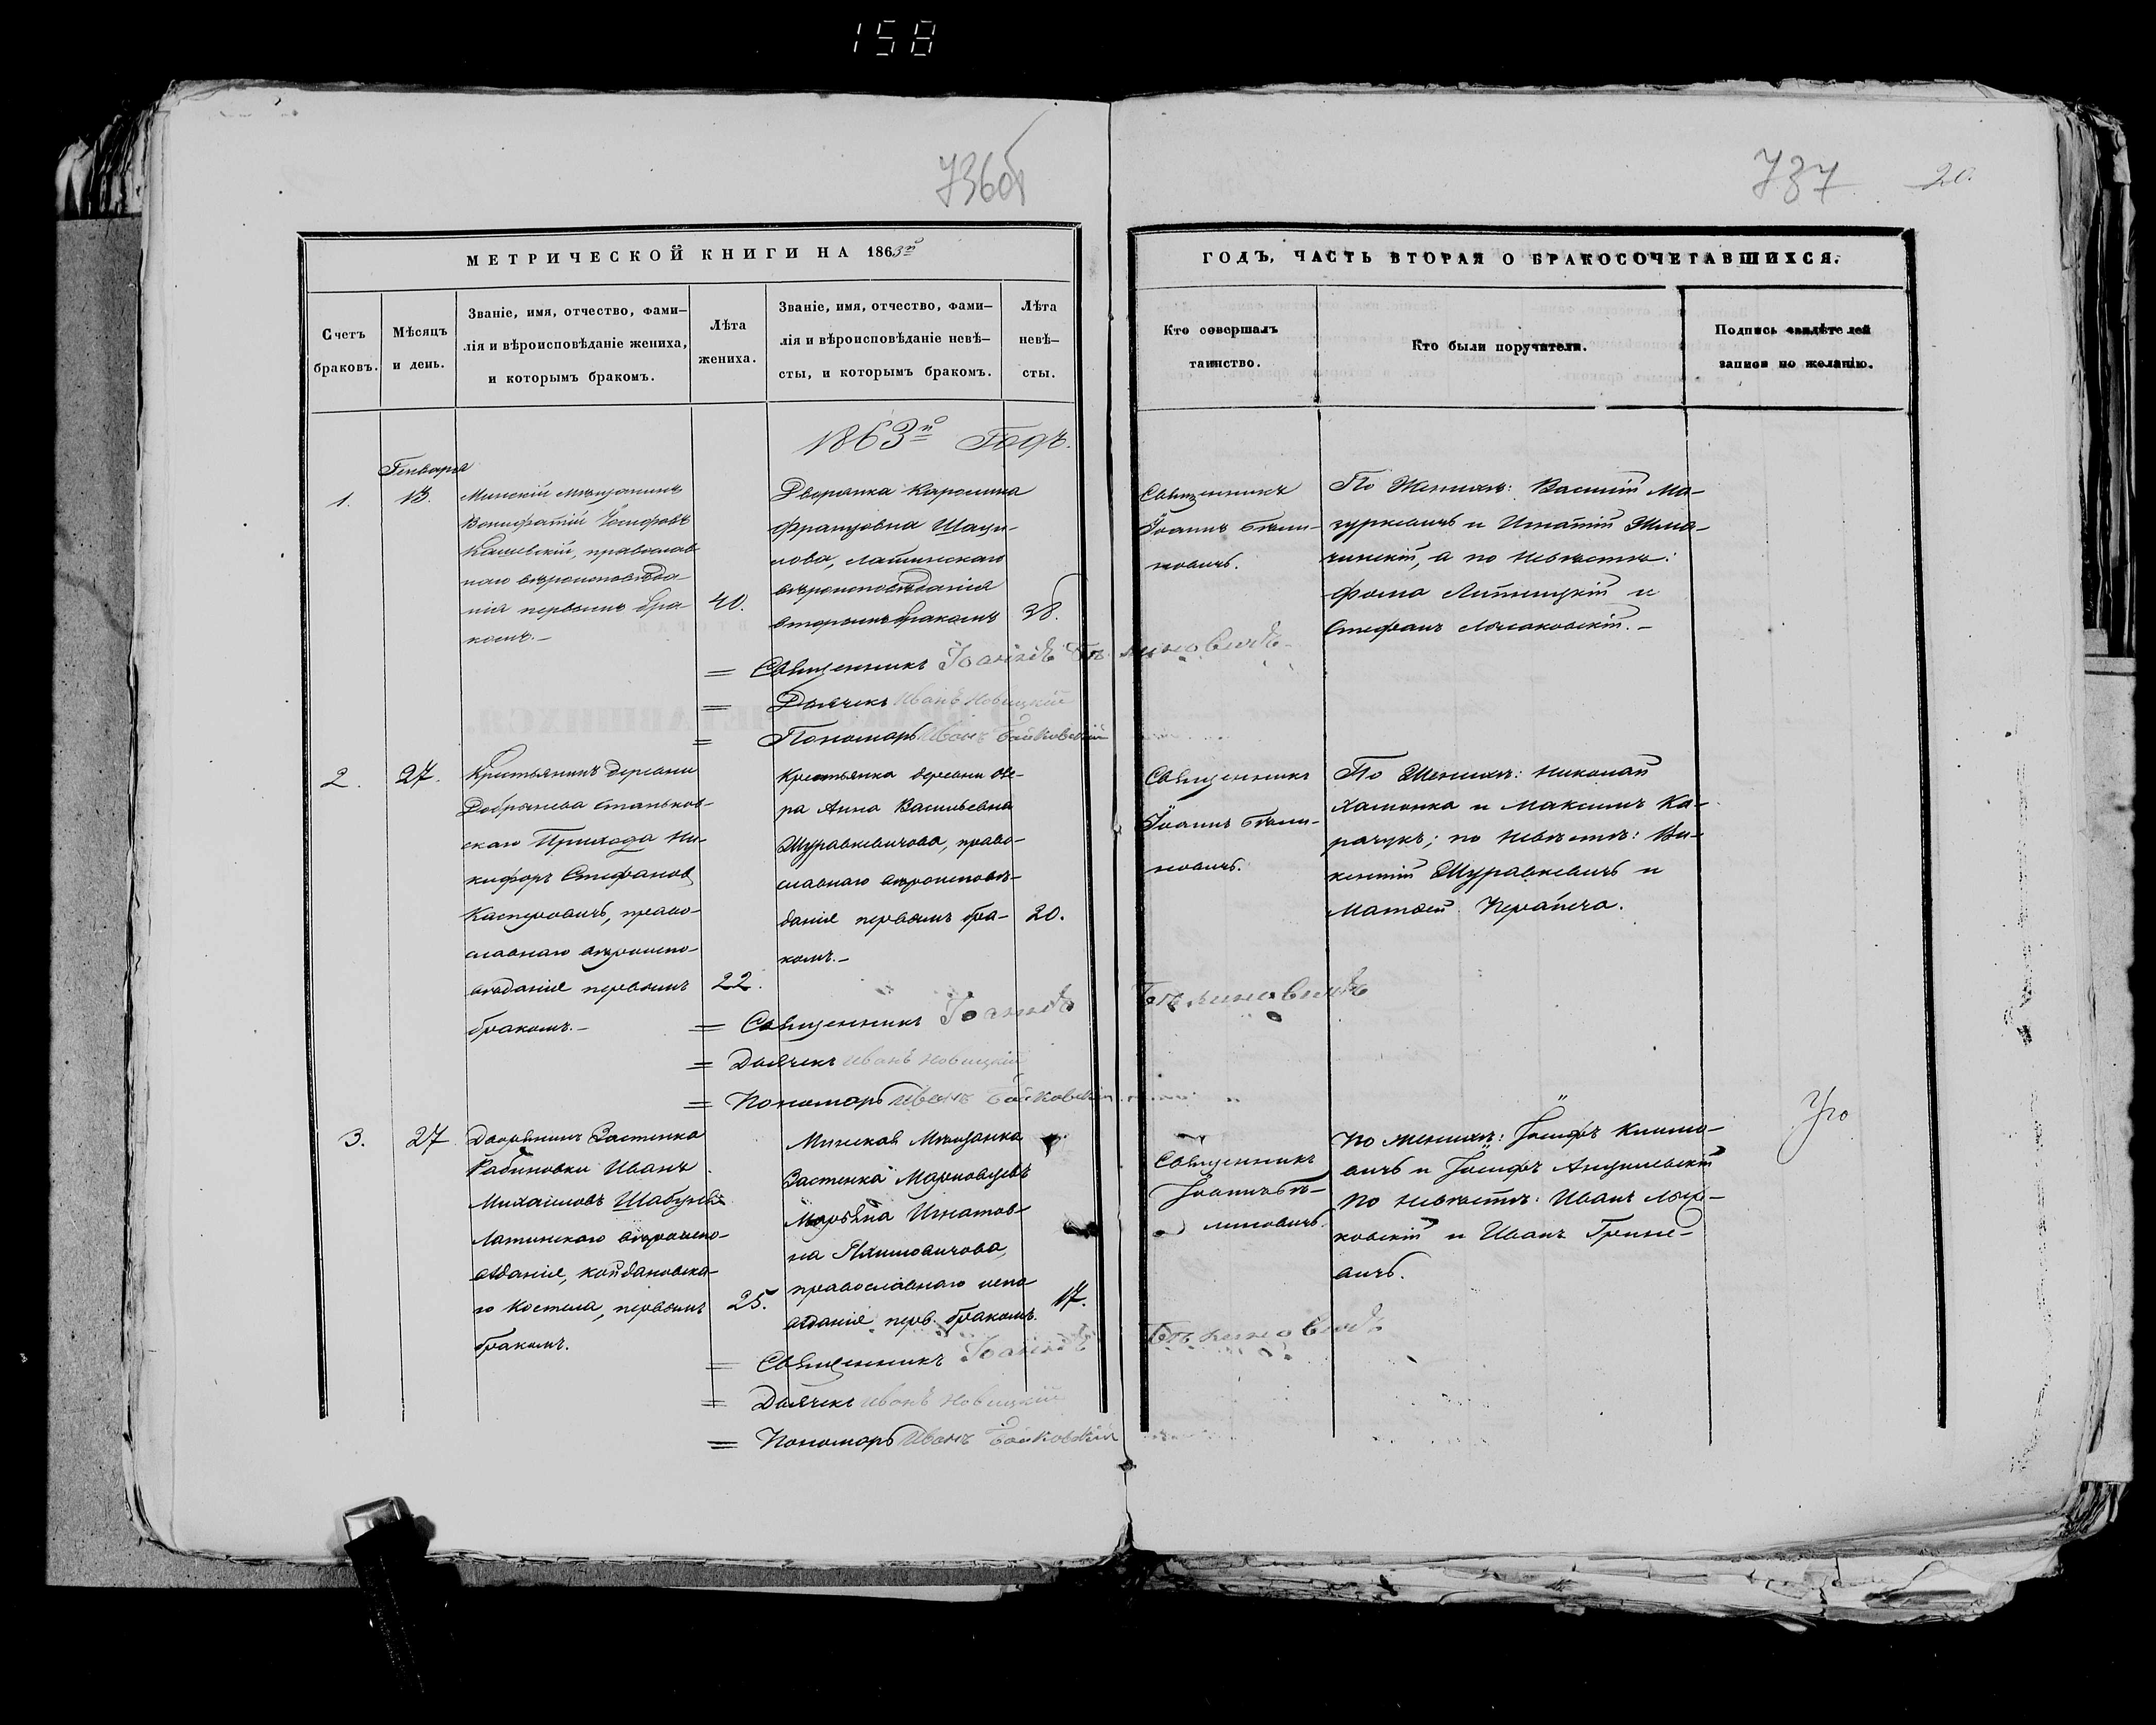 158
736об
737
20.
МЕТРИЧЕСКОЙ КНИГИ НА 1863й
ГОДЪ, ЧАСТЬ ВТОРАЯ О БРАКОСОЧЕТАВШИХСЯ.
Счетъ
браковъ.
Мѣсяцъ
и день.
Званіе, имя, отчество, фами–
лія и вѣроисповѣданіе жениха,
и которымъ бракомъ.
Лѣта
жениха.
Званіе, имя, отчество, фами–
лія и вѣроисповѣданіе невѣ–
сты, и которымъ бракомъ.
Лѣта
невѣ–
сты.
Кто совершалъ
таинство.
Кто были поручители.
Подпись свидѣтелей
записи по желанію.
1863й Годъ.
Генваря
1.
13.
Минскій мѣщанинъ
Вонифатій Іосифовъ
православ
наго вѣроисповѣда–
нія первымъ бра–
комъ.–
40.
Дворянка Каролина
Францовна Шаци–
лова, Латинскаго
вѣроисповѣданія
вторымъ бракомъ
38.
Священникъ
Іоаннъ Бѣли–
новичъ.
По Женихѣ: Василій Ма–
зуркевичъ и Игнатій
а по Невѣстѣ:
Фома и
Стефанъ
= Священникъ Іоаннъ Бѣлиновичъ
= Дьячекъ Иванъ Новицкій
= Пономарь Иванъ Байковскій
2.
27.
Крестьянинъ деревни
Добринева Станьков–
скаго Прихода Ни–
кифоръ Стефановъ
Касперовичъ, право–
славнаго вѣроиспо–
вѣданія первымъ
бракомъ.–
22.
Крестьянка деревни
Анна Васильевна
Журавкевичова, право–
славнаго вѣроисповѣ–
данія первымъ бра–
комъ.–
20.
Священникъ
Іоаннъ Бѣли–
новичъ.
По Женихѣ: Николай
и Максимъ Ка–
рачукъ; по Невѣстѣ: Ви–
кентій Журавкевичъ и
Матвѣй
= Священникъ Іоаннъ Бѣлиновичъ
= Дьячекъ Иванъ Новицкій
= Пономарь Иванъ Байковскій
3.
27
Дворянинъ Застенка
Рабиновки Иванъ
Михайловъ
Латинскаго вѣроиспо–
вѣданія, койдановска–
го костела, первымъ
бракомъ.
25.
Минская Мѣщанка
Застенка
Марьяна Игнатов–
на Климовичова,
православнаго испо
вѣданія перв. бракомъ.
17.
Священникъ
Іоаннъ Бѣ–
линовичъ.
По женихѣ: Іосифъ Климо–
вичъ и Іосифъ
по невѣстѣ: Иванъ
ковскій и Иванъ Грине–
вичъ.
= Священникъ Іоаннъ Бѣлиновичъ
= Дьячекъ Иванъ Новицкій
= Пономарь Иванъ Байковскій